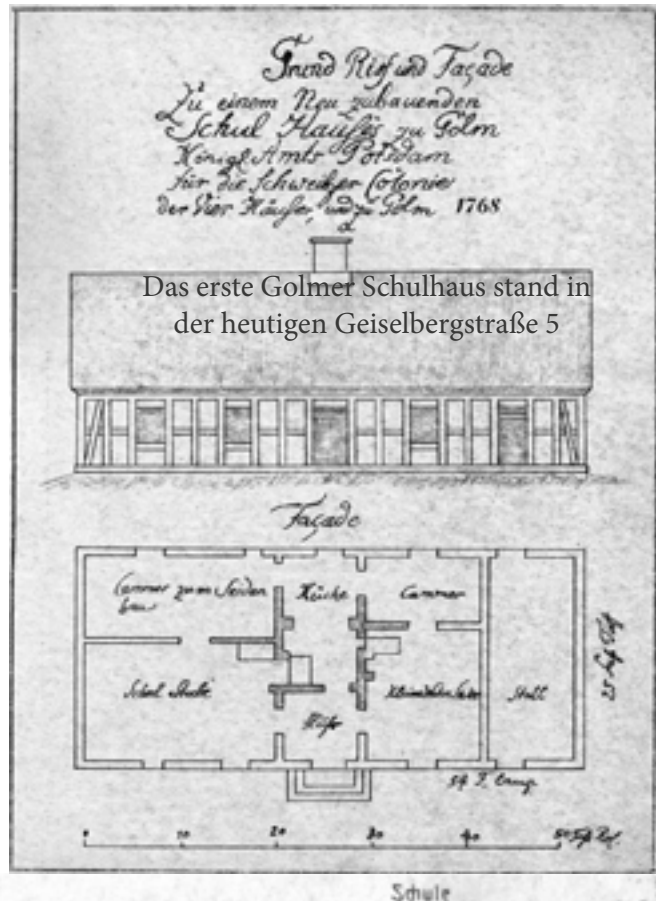 Grund Riß und Façade
Zu einem Neu zubauenden
Schul Hauses zu Golm
Königl. Amts Potsdam
für die Schweitzer Colonie
der Vier Häußer, und zu Golm 1768
a
Das erste Golmer Schulhaus stand in
der heutigen Geiselbergstraße 5
Façade
Cammer zum Seiden
bau
Küche
Cammer
Schul Stube
Stall
54 F. lang
0 10 20 30 40 50
Schule